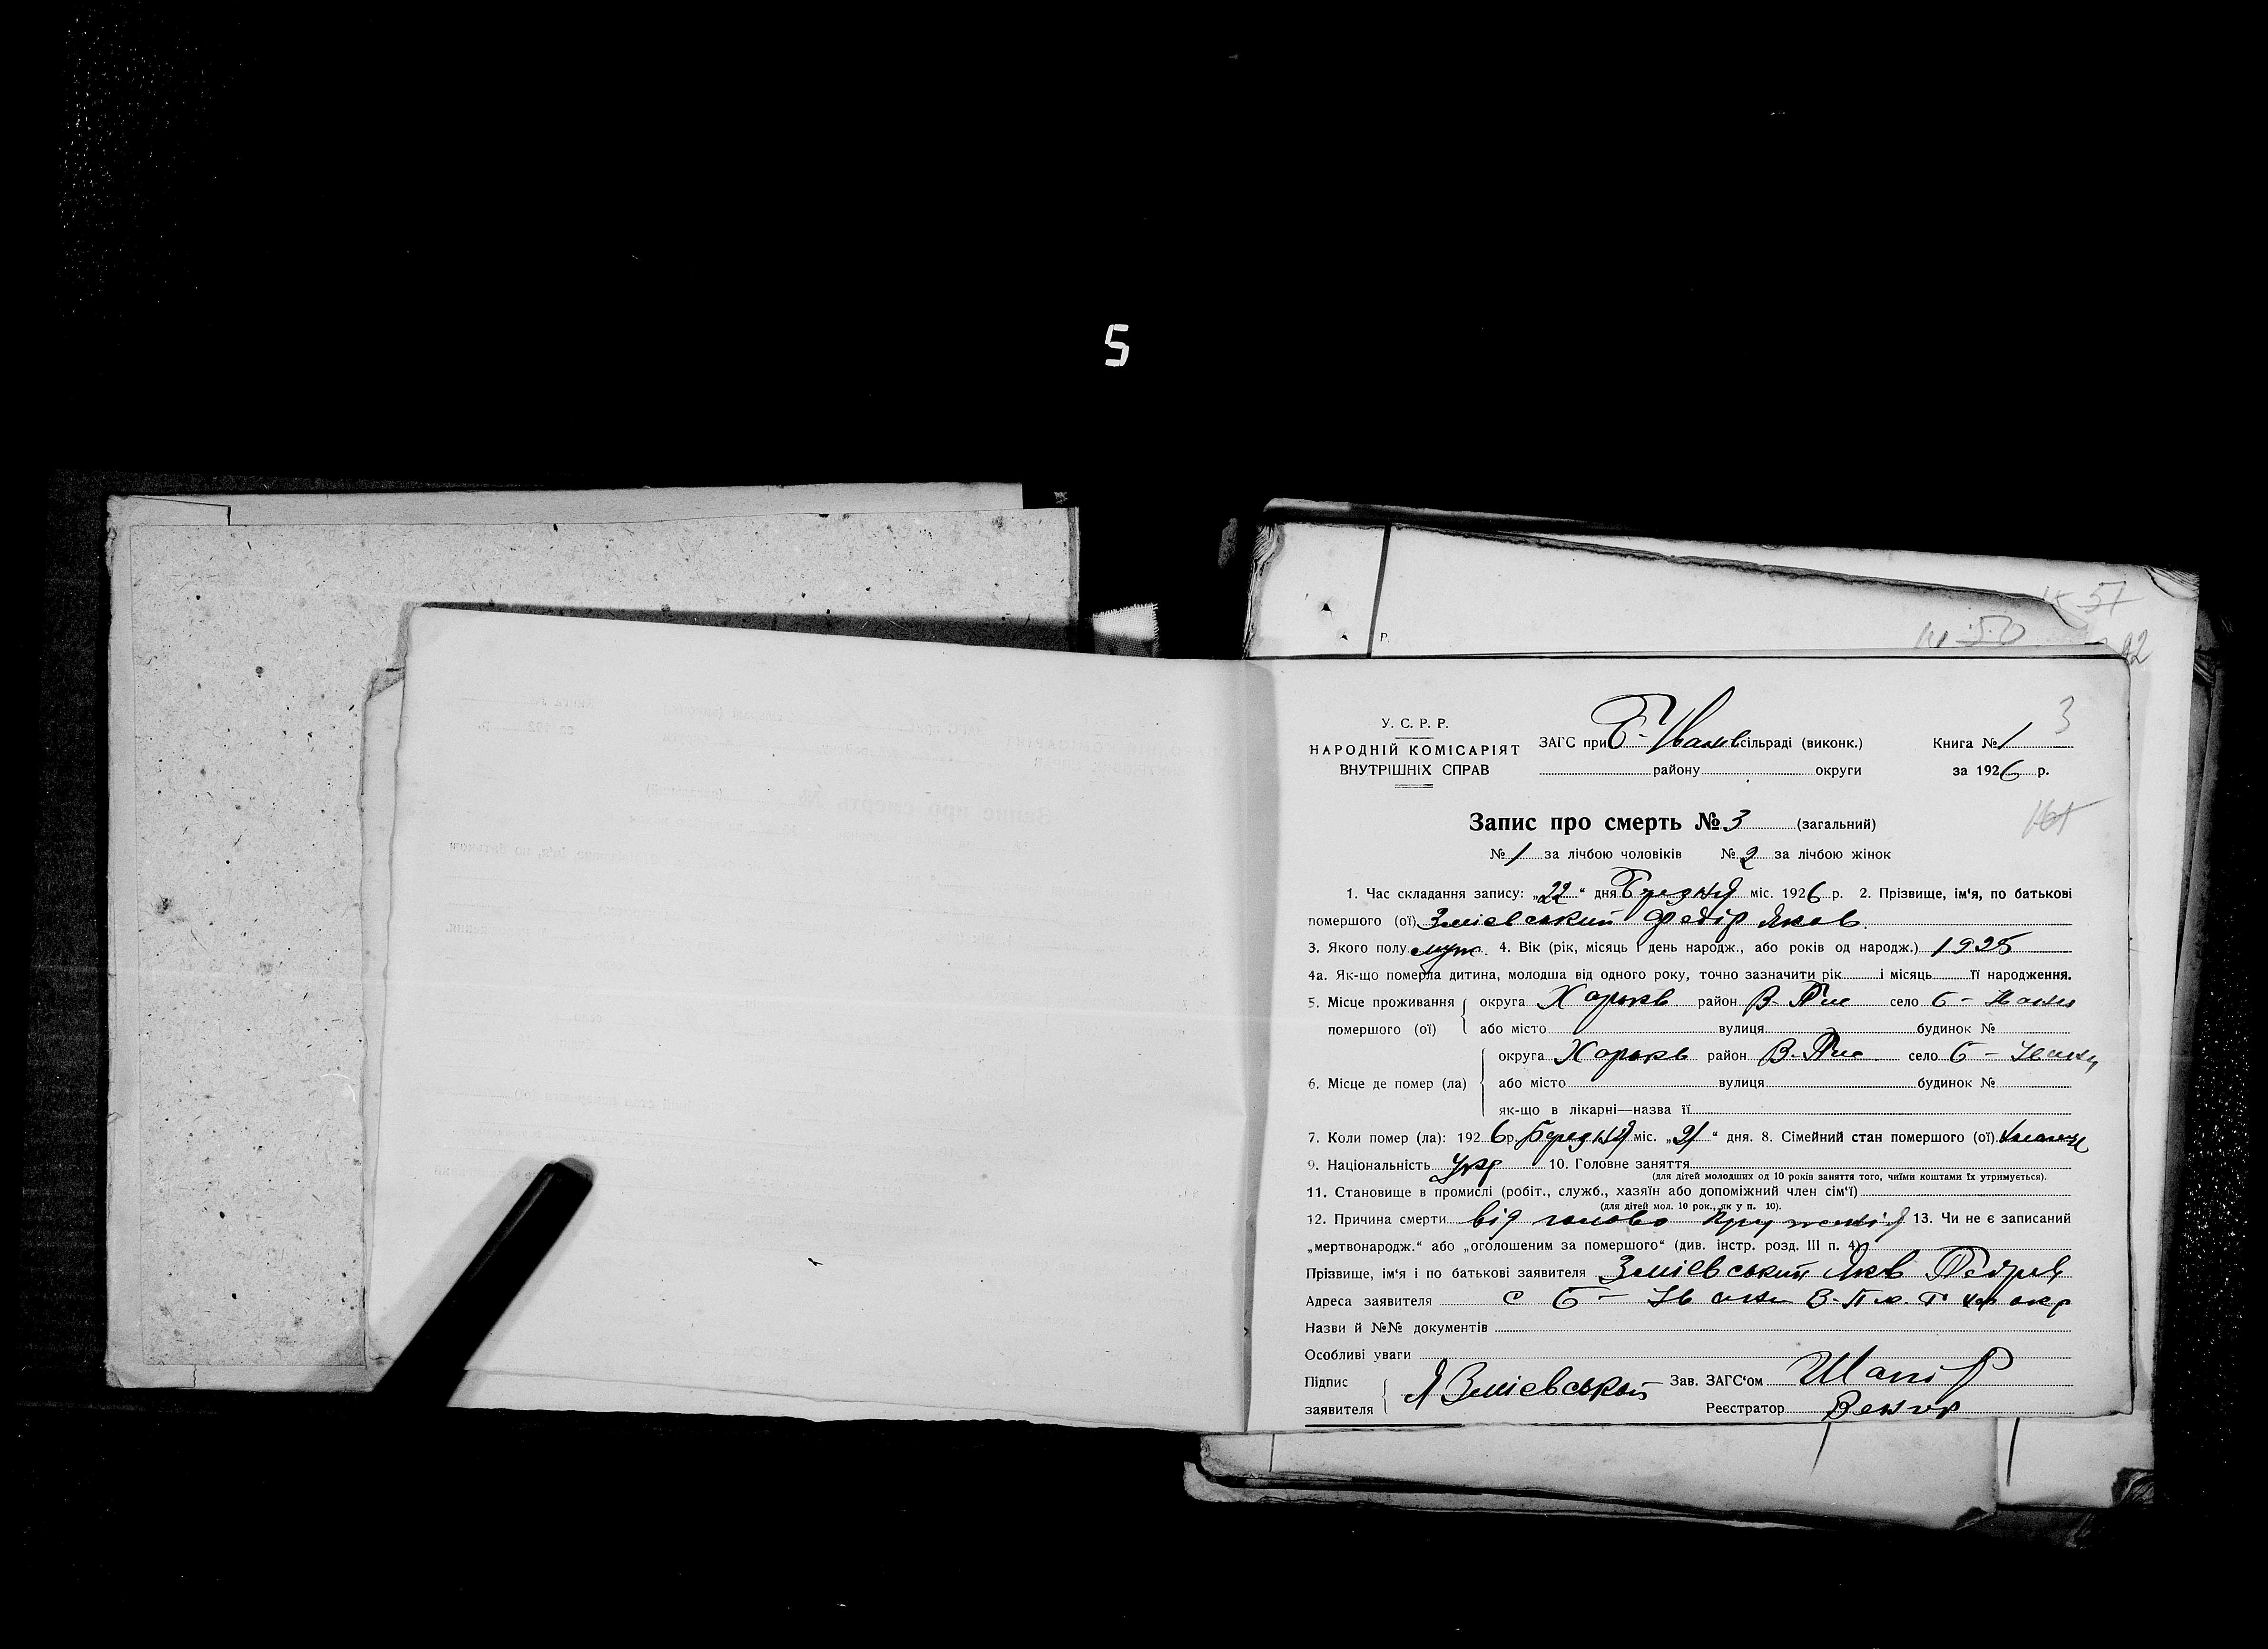 5
57
50
92
3
У. С. Р. Р.
НАРОДНІЙ КОМІСАРІЯТ
ВНУТРІШНІХ СПРАВ
ЗАГС при Б-Іванів сільраді (виконк.)
району округи
Книга № 1
за 1926 р.
Запис про смерть № 3 (загальний)
№ 1 за лічбою чоловіків № 2 за лічбою жінок
1. Час складання запису: „22“ дня міс. 1926 р. 2. Прізвище, ім‘я, по батькові
помершого (ої) Зміевський Федір Яков.
3. Якого полу муж. 4. Вік (рік, місяць і день народж., або років од народж.) 1925
4а. Як-що померла дитина, молодша від одного року, точно зазначити рік і місяць її народження.
5. Місце проживання округа Харьків район В-Пис село Б-
помершого (ої) або місто вулиця будинок №
округа Харьків район В-Пис село Б-
6. Місце де помер (ла) або місто вулиця будинок №
як-що в лікарні—назва її
7. Коли помер (ла): 1926 р. міс. „21“ дня. 8. Сімейний стан помершого (ої)
9. Національність Укр 10. Головне заняття
(для дітей молодших од 10 років заняття того, чиїми коштами їх утримується).
11. Становище в промислі (робіт., служб., хазяїн або допоміжний член сім‘ї)
(для дітей мол. 10 рок., як у п. 10).
12. Причина смерти від голово 13. Чи не є записаний
„мертвонародж.“ або „оголошеним за помершого“ (див. інстр. розд. III п. 4)
Прізвище, ім‘я і по батькові заявителя Зміевський Яків Петров
Адреса заявителя с Б- В-Пис. Р Хар окр
Назви й №№ документів
Особливі уваги
Підпис
заявителя Я Зміевський
Зав. ЗАГС‘ом
Реєстратор